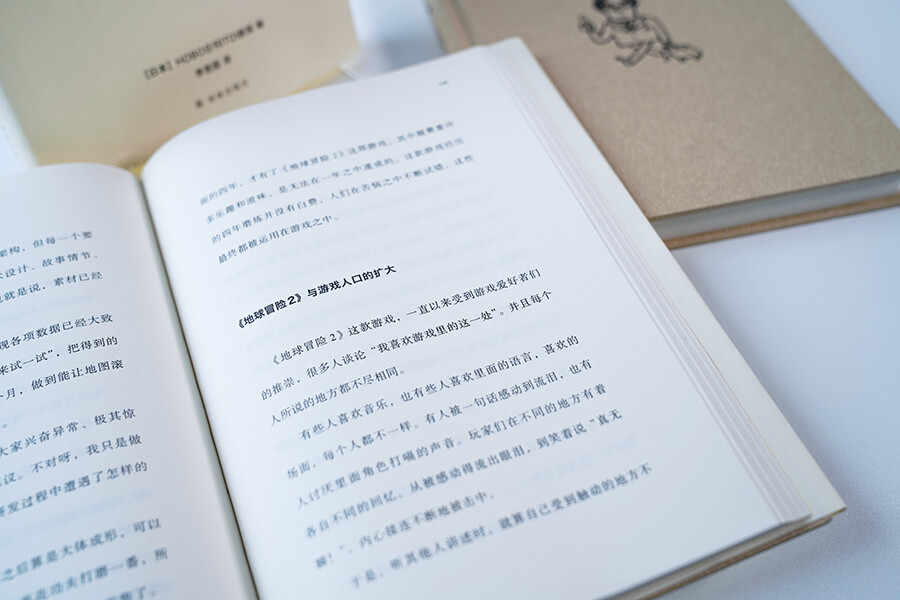 [日本] HOBO日刊ITOI新闻 著
架构，但每一个要
设计、故事情节、
也就是说，素材已经
现各项数据已经大致
来试一试”，把得到的
个月，做到能让地图滚
。
大家兴奋异常、极其惊
议。不对呀，我只是做
研发过程中遭遇了怎样的
之后算是大体成形，可以
功夫打磨一番，所
面的四年，才有了《地球冒险 2》这部游戏，其中凝聚着许
多乐趣和滋味，是无法在一年之中速成的，这款游戏经历
的四年磨炼并没有白费，人们在苦恼之中不断试错，这些
最终都被运用在游戏之中。
《地球冒险 2》与游戏人口的扩大
《地球冒险 2》这款游戏，一直以来受到游戏爱好者们
的推崇，很多人谈论“我喜欢游戏里的这一处”。并且每个
人所说的地方都不尽相同。
有些人喜欢音乐，也有些人喜欢里面的语言，喜欢的
场面，每个人都不一样。有人被一句话感动到流泪，也有
人讨厌里面角色打嗝的声音。玩家们在不同的地方有着
各自不同的回忆。从被感动得流出眼泪，到笑着说“真无
聊！”，内心接连不断地被击中。
于是，听其他人讲述时，就算自己受到触动的地方不